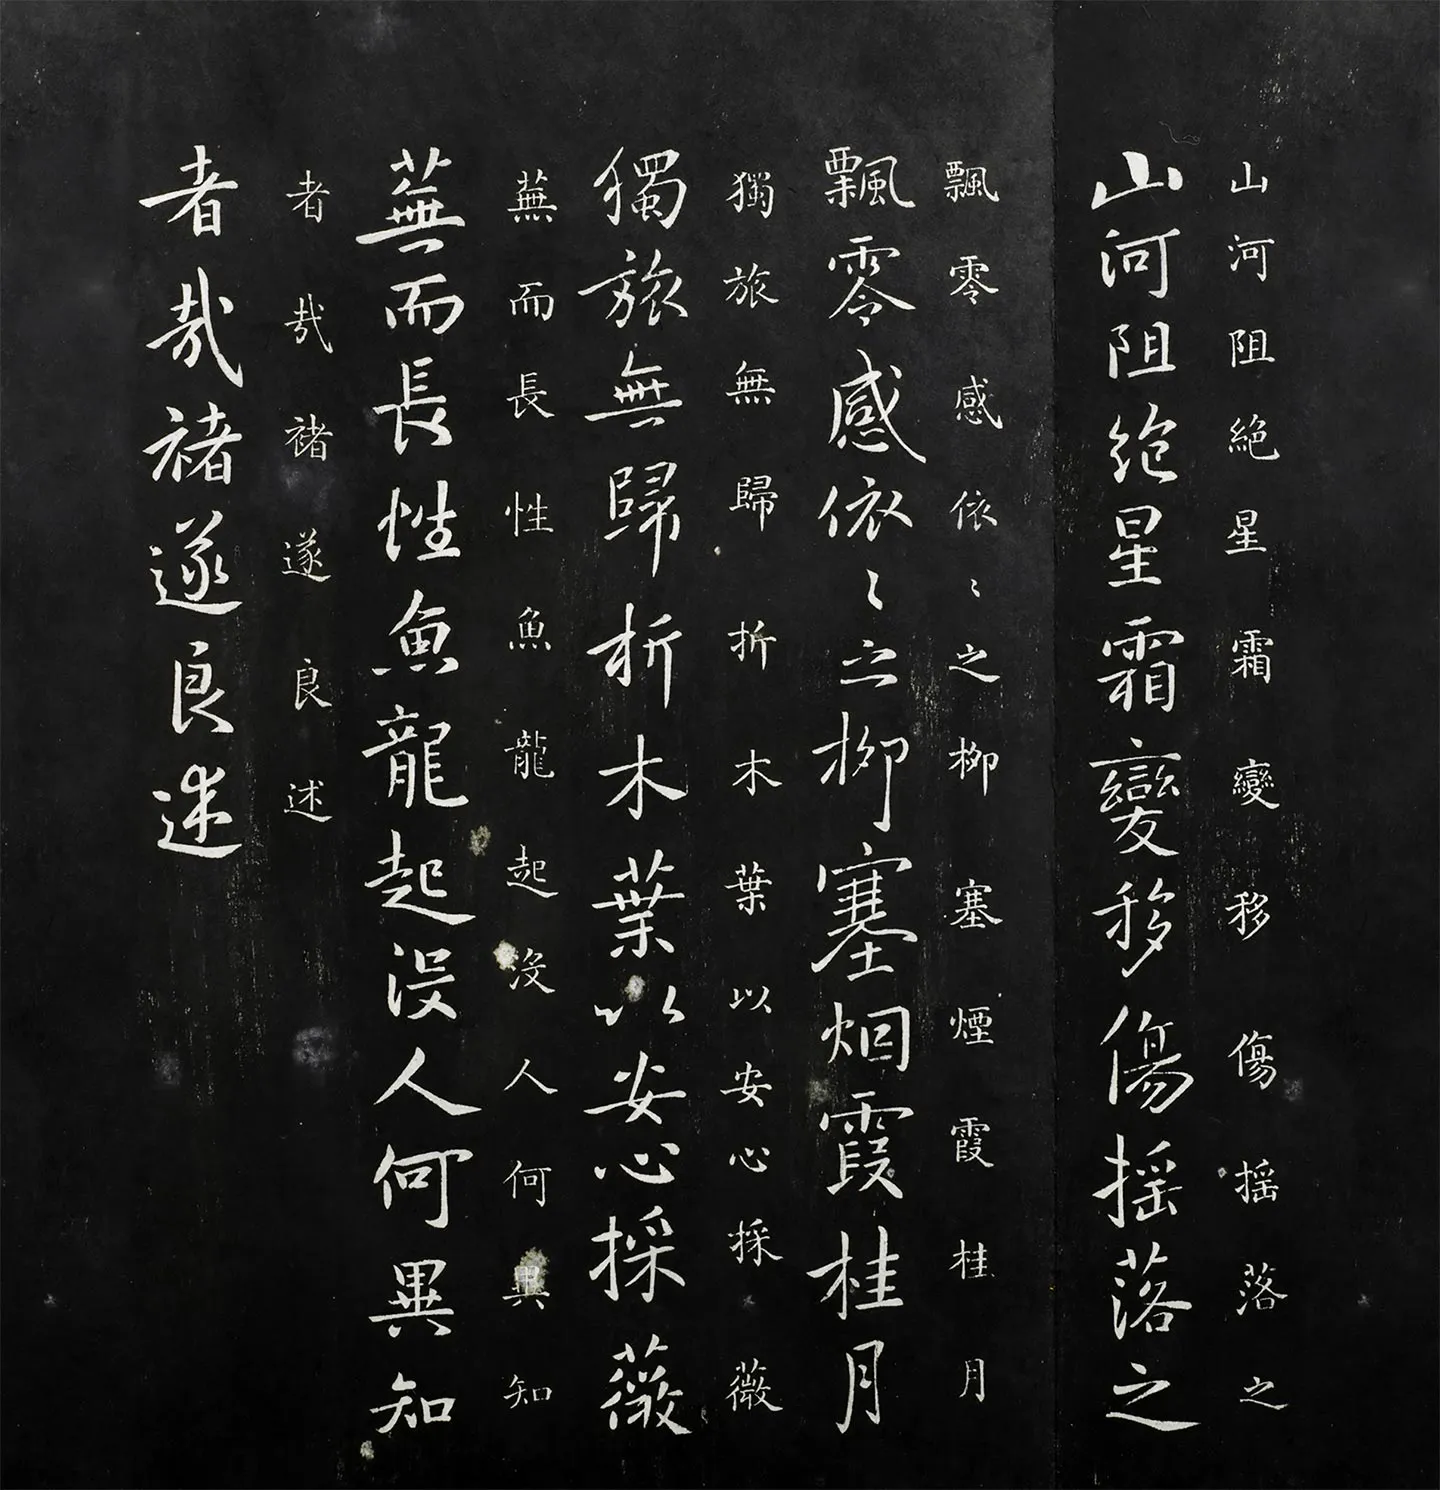 山河阻絶星霜變移傷摇落之
山河阻絶星霜變移傷摇落之
飄零感依〻之柳塞煙霞桂月
飄零感依〻之柳塞烟霞桂月
獨旅無歸折木葉以安心採薇
獨旅無歸折木葉以安心採薇
蕪而長性魚龍起没人何異知
蕪而長性魚龍起没人何異知
者哉褚遂良述
者哉褚遂良述